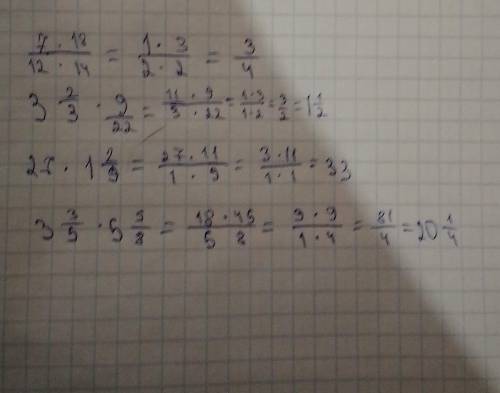 7 · 18 / 12 · 14 = 1 · 3 / 2 · 2 = 3/4
3 2/3 · 9/22 = 11 · 9 / 3 · 22 = 1 · 3 / 1 · 2 = 3/2 = 1 1/2
27 · 1 2/9 = 27 · 11 / 1 · 9 = 3 · 11 / 1 · 1 = 33
3 3/5 · 5 5/8 = 18 · 45 / 5 8 = 9 · 9 / 1 · 4 = 81/4 = 20 1/4